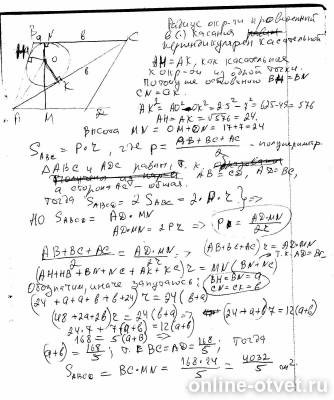 B a N b C
H
O
K
A M D
Радиус окр-ти проведенный
в (.) касания
перпендикулярен касательной
AH = AK, как касательная
к окр-ти из одной точки.
Потому же остальному BH = BN
CN = CK.
AK² = AO² - OK² = 25² - 7² = 625 - 49 = 576
AH = AK = √576 = 24.
Высота MN = OM + ON = 17 + 7 = 24
S_ABC = P·r, где P = (AB+BC+AC)/2 - полупериметр.
ΔABC и ADC равны, т.к. AB = CD, AD = BC,
а сторона AC - общая.
Тогда S_ABCD = 2 S_ABC = 2·P·r }=>
НО S_ABCD = AD·MN
AD·MN = 2Pr => P = AD·MN/2r
(AB+BC+AC)/2 = AD·MN/2r => (AB+BC+AC)r = AD·MN
т.к. AD=BC
(AH+HB+BN+NC+AK+KC)r = MN(BN+NC)
Обозначим, иначе запишется: (BH=BN=a CN=CK=b)
(24+a+a+b+b+24)r = 24(b+a)
(48+2a+2b)r = 24(b+a) => (24+a+b)7 = 12(a+b)
24·7 + 7(a+b) = 12(a+b)
168 = 5(a+b) =>
(a+b) = 168/5; т.е BC=AD = 168/5; тогда
S_ABCD = BC·MN = 168·24/5 = 4032/5 см²
online-otvet.ru